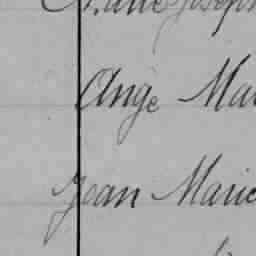 Joseph
Ange Mar
Jean Marie